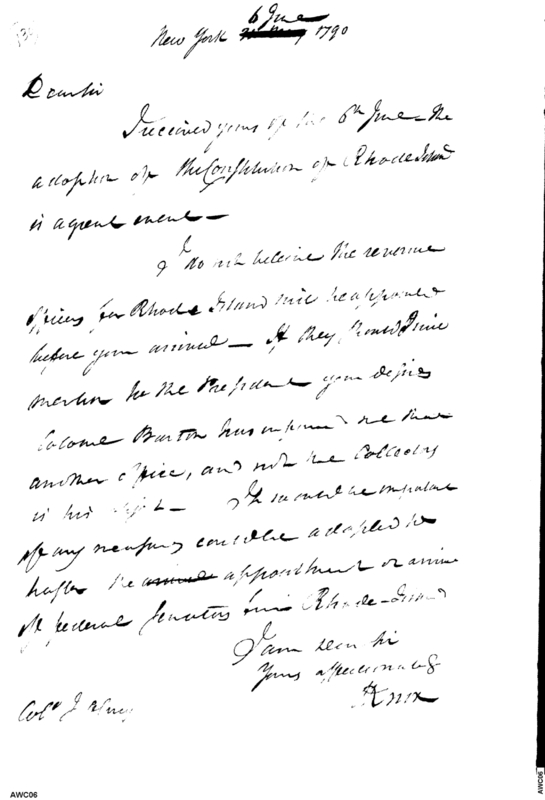 6 June
New York 1790
Dear Sir
I received yours of the 6th June - the
adoption of the Constitution of Rhode Island
is a great event -
I do not believe the revenue
officers for Rhode Island will be appointed
before your arrival - If they should I will
mention to the President your desires
Colonel Barton has informed me that
another office, and not the Collectors
is his - It would be important
if any measures could be adopted to
hasten the appointment or arrival
of federal Senators from Rhode-Island
I am dear sir
Yours affectionately
HKnox
Colo J
AWC06
AWC06